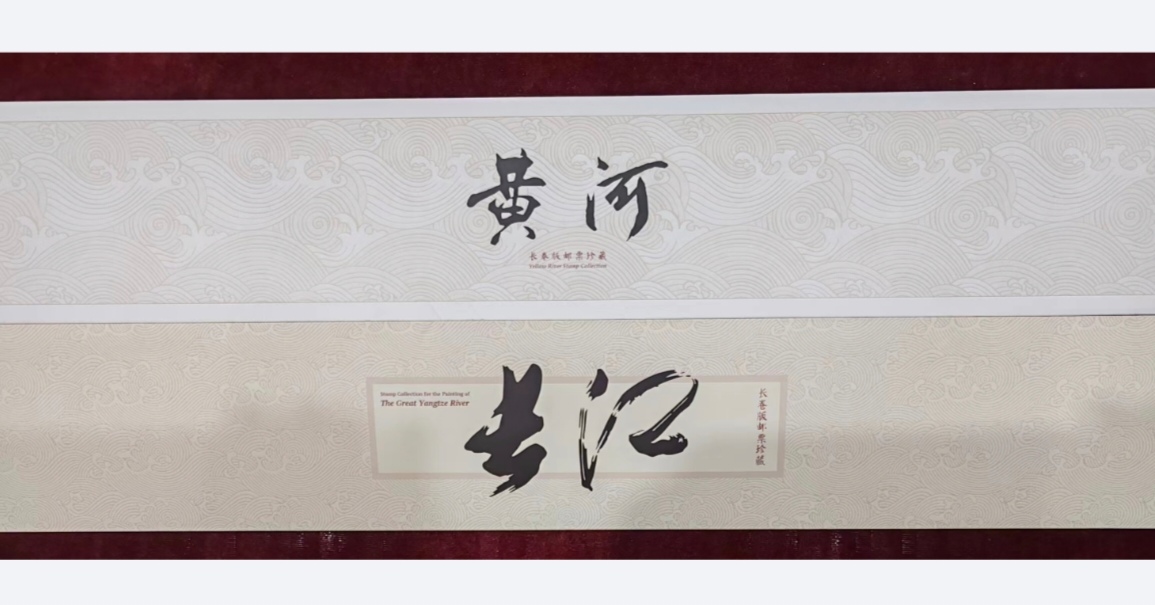 黄河
长卷版邮票珍藏
Yellow River Stamp Collection
Stamp Collection for the Painting of
The Great Yangtze River
长江
长卷版邮票珍藏